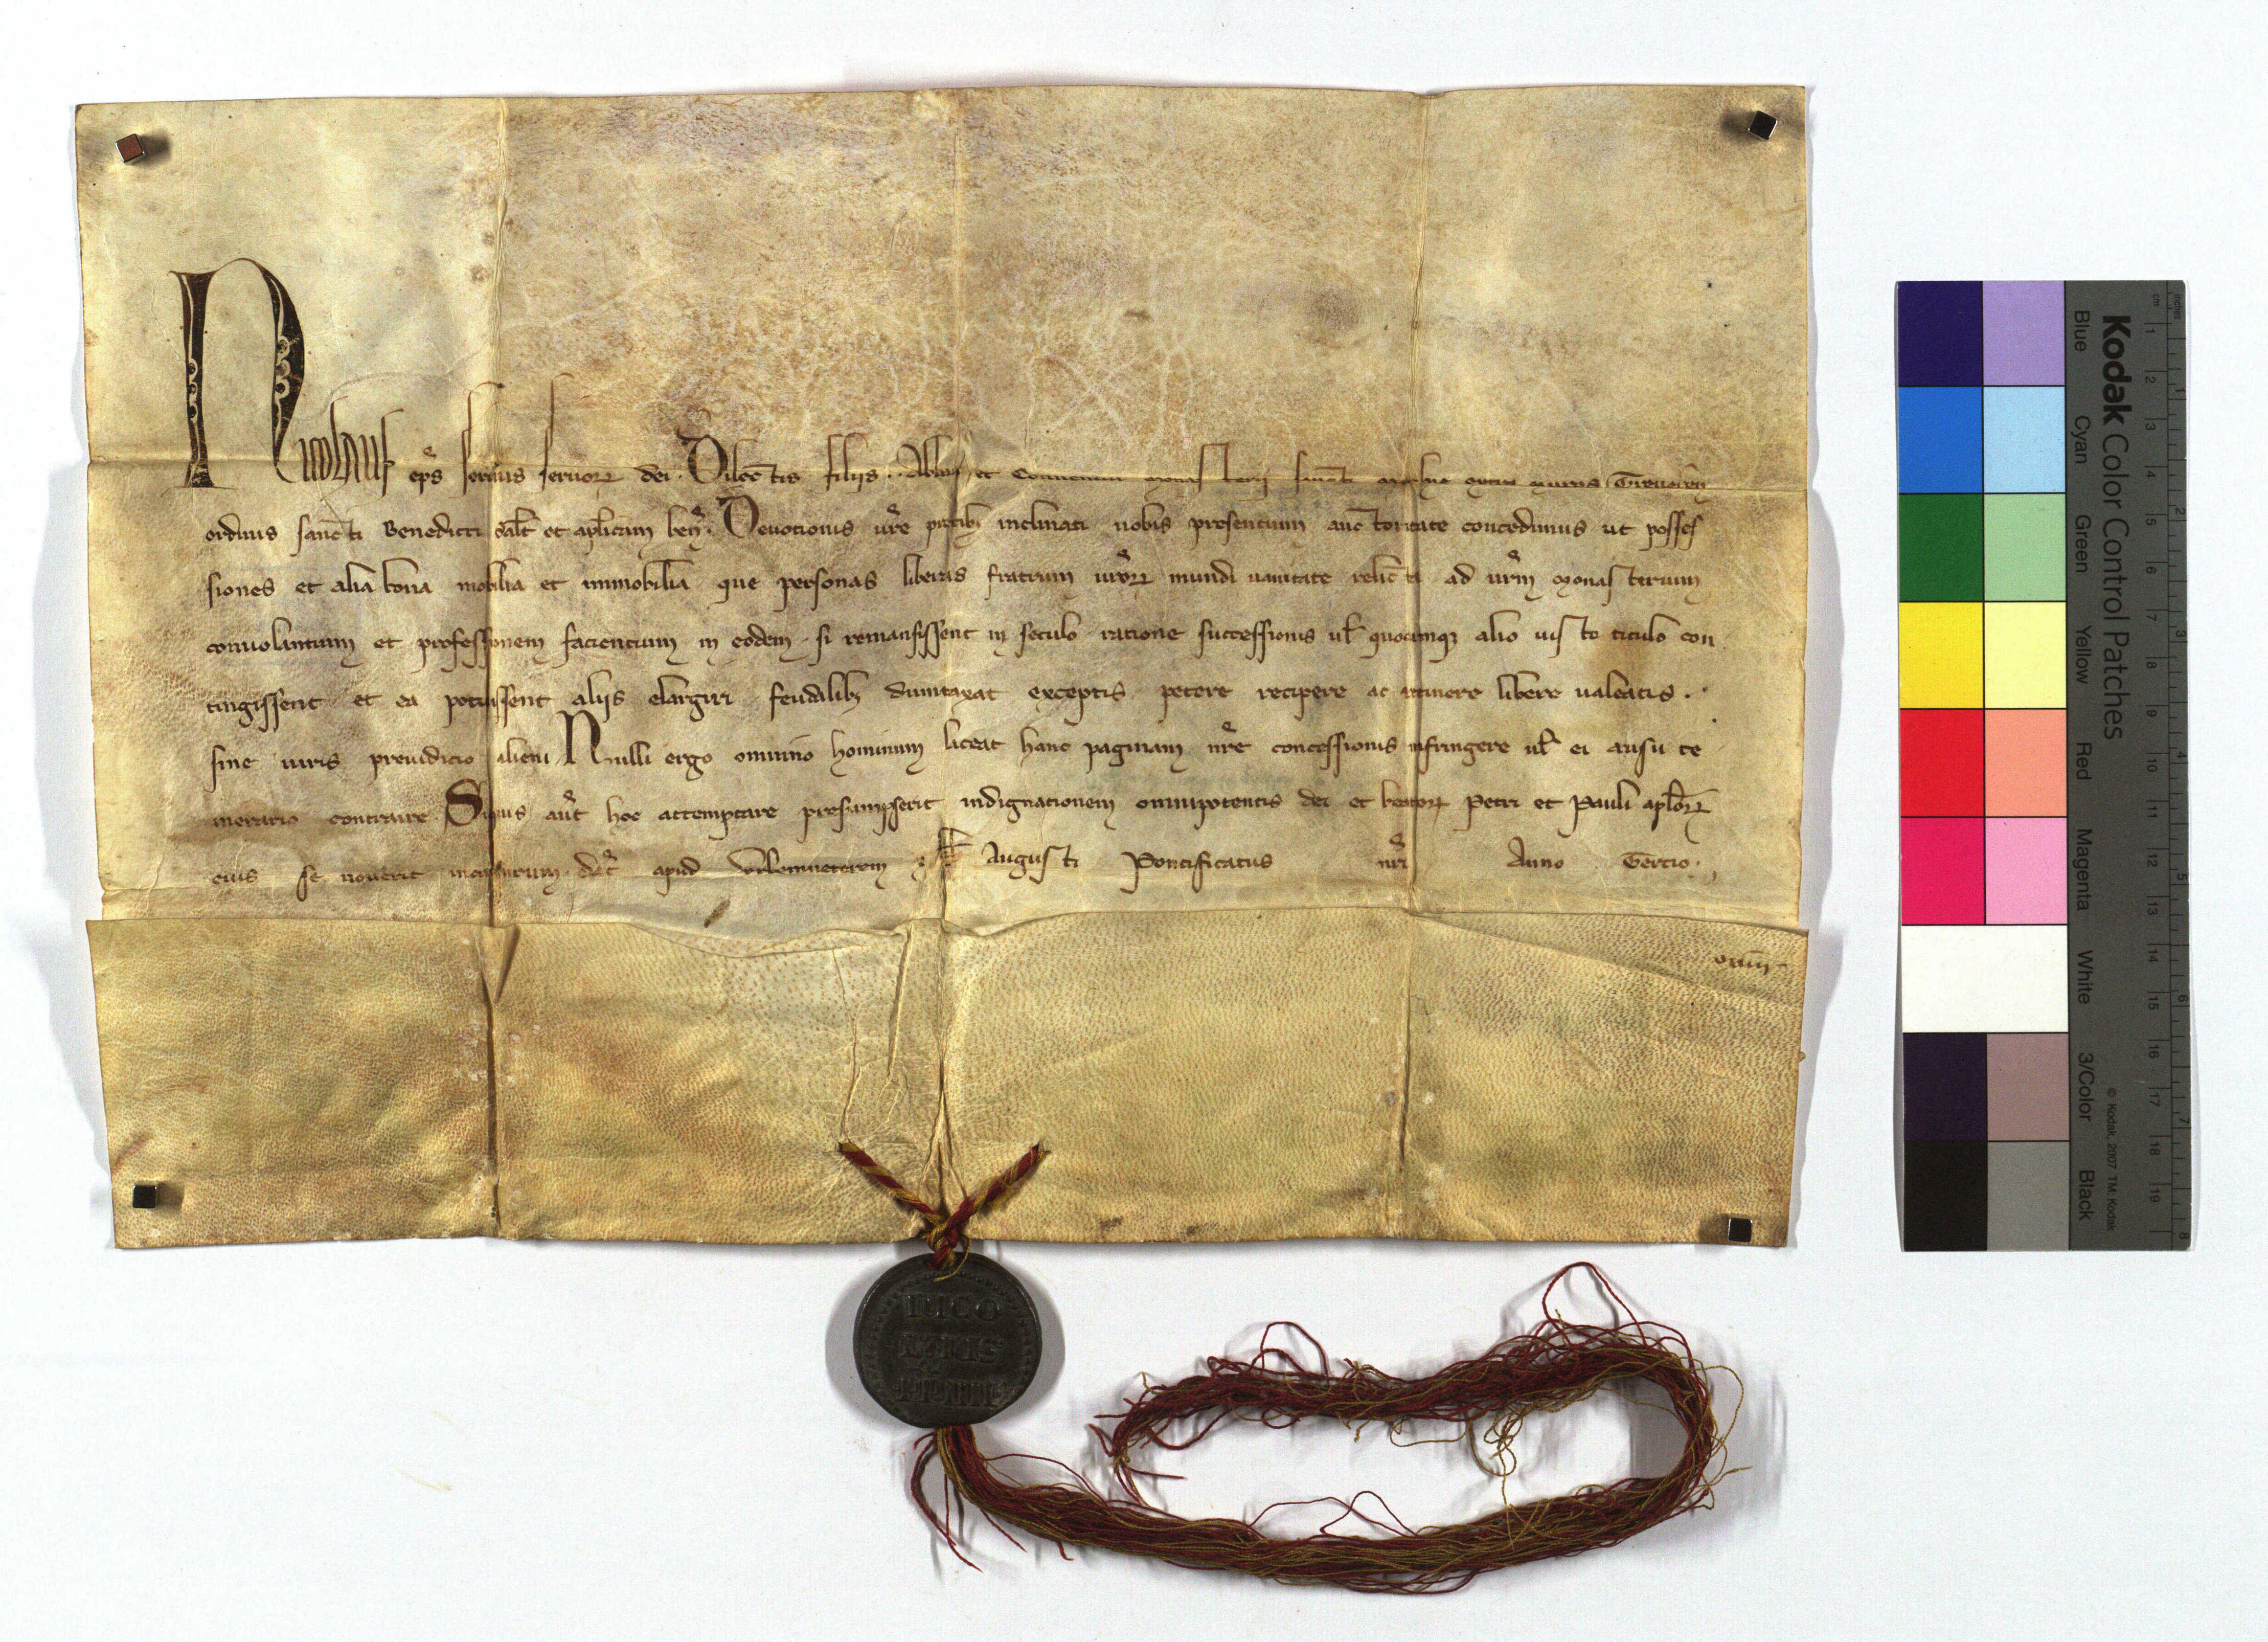 Nicolaus ep̄s seruus seruoꝝ dei. Dilectis filijs .. Abbati et Conuentui monasterij sancti extra muros Treueren̄
ordinis sancti Benedicti salt̄ et aplicam ben̄. Deuotionis ur̄e precibꝫ inclinati uobis presentium auctoritate concedimus ut posses
siones et alia bona mobilia et immobilia que personas liberas fratrum ur̄oꝝ mundi uanitate relicta ad ur̄m monasterium
conuolantium et professionem facientium in eodem si remansissent in seculo ratione successionis ul̄ quocumqꝫ alio iusto titulo con
tigissent et ea potuissent alijs elargiri feudalibꝫ dumtaxat exceptis petere recipere ac retinere libere ualeatis .
sine iuris preiudicio alieni. Nulli ergo omnino hominum liceat hanc paginam nr̄e concessionis infringere ul̄ ei ausu te
merario contraire. Siquis aut̄ hoc attemptare presumpserit indignationem omnipotentis dei et beatoꝝ Petri et Pauli apl̄oꝝ
eius se nouerit incursurum. dat̄ apud Vrbemueterem Augusti Pontificatus nr̄i Anno Tercio.
NICO
LAUS
PP IIII
Kodak Color Control Patches
Blue Cyan Green Yellow Red Magenta White 3/Color Black
© Kodak, 2007 TM: Kodak
inches 1 2 3 4 5 6 7 8
cm 1 2 3 4 5 6 7 8 9 10 11 12 13 14 15 16 17 18 19